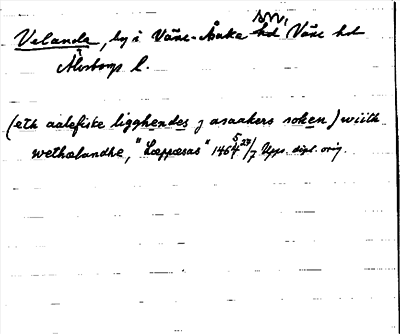 Velanda, by i Väne-Åsaka sn, Väne hd
Älvsborgs l.
(eth aalefiske ligghendes j asaakers soken) wiith
wethælandhe, "Læppæsas" 1454 23/7 Upps. dipl. orig.